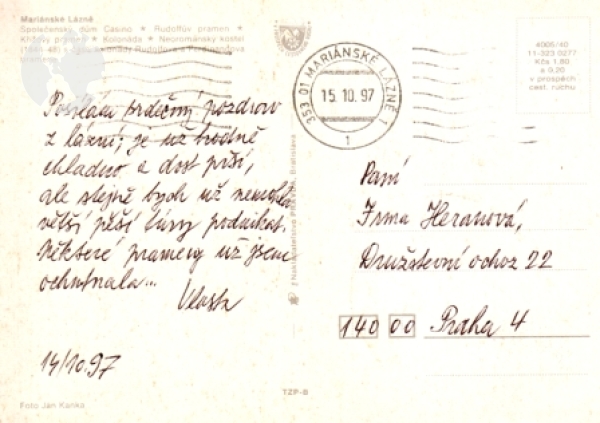 Mariánské Lázně
Společenský dům Casino ★ Rudolfův pramen ★
Křížový pramen ★ Kolonáda ★ Novorománský kostel
(1844-48) s kolonády Rudolfova a Ferdinandova
pramene
353 01 MARIÁNSKÉ LÁZNĚ 1
15.10.97
1
4005/40
11-323 0277
Kčs 1,80
a 0,20
v prospěch
cest. ruchu
Posílám srdečný pozdrav
z lázní; je už hodně
chladno a dost prší,
ale stejně bych už nemohla
větší pěší túry podnikat.
Některé prameny už jsem
ochutnala...
Vlasta
14/10.97
Nakladatelstvo PRAVDA, Bratislava
Paní
Irma Heranová,
Družstevní ochoz 22
140 00 Praha 4
TZP-8
Foto Ján Kanka